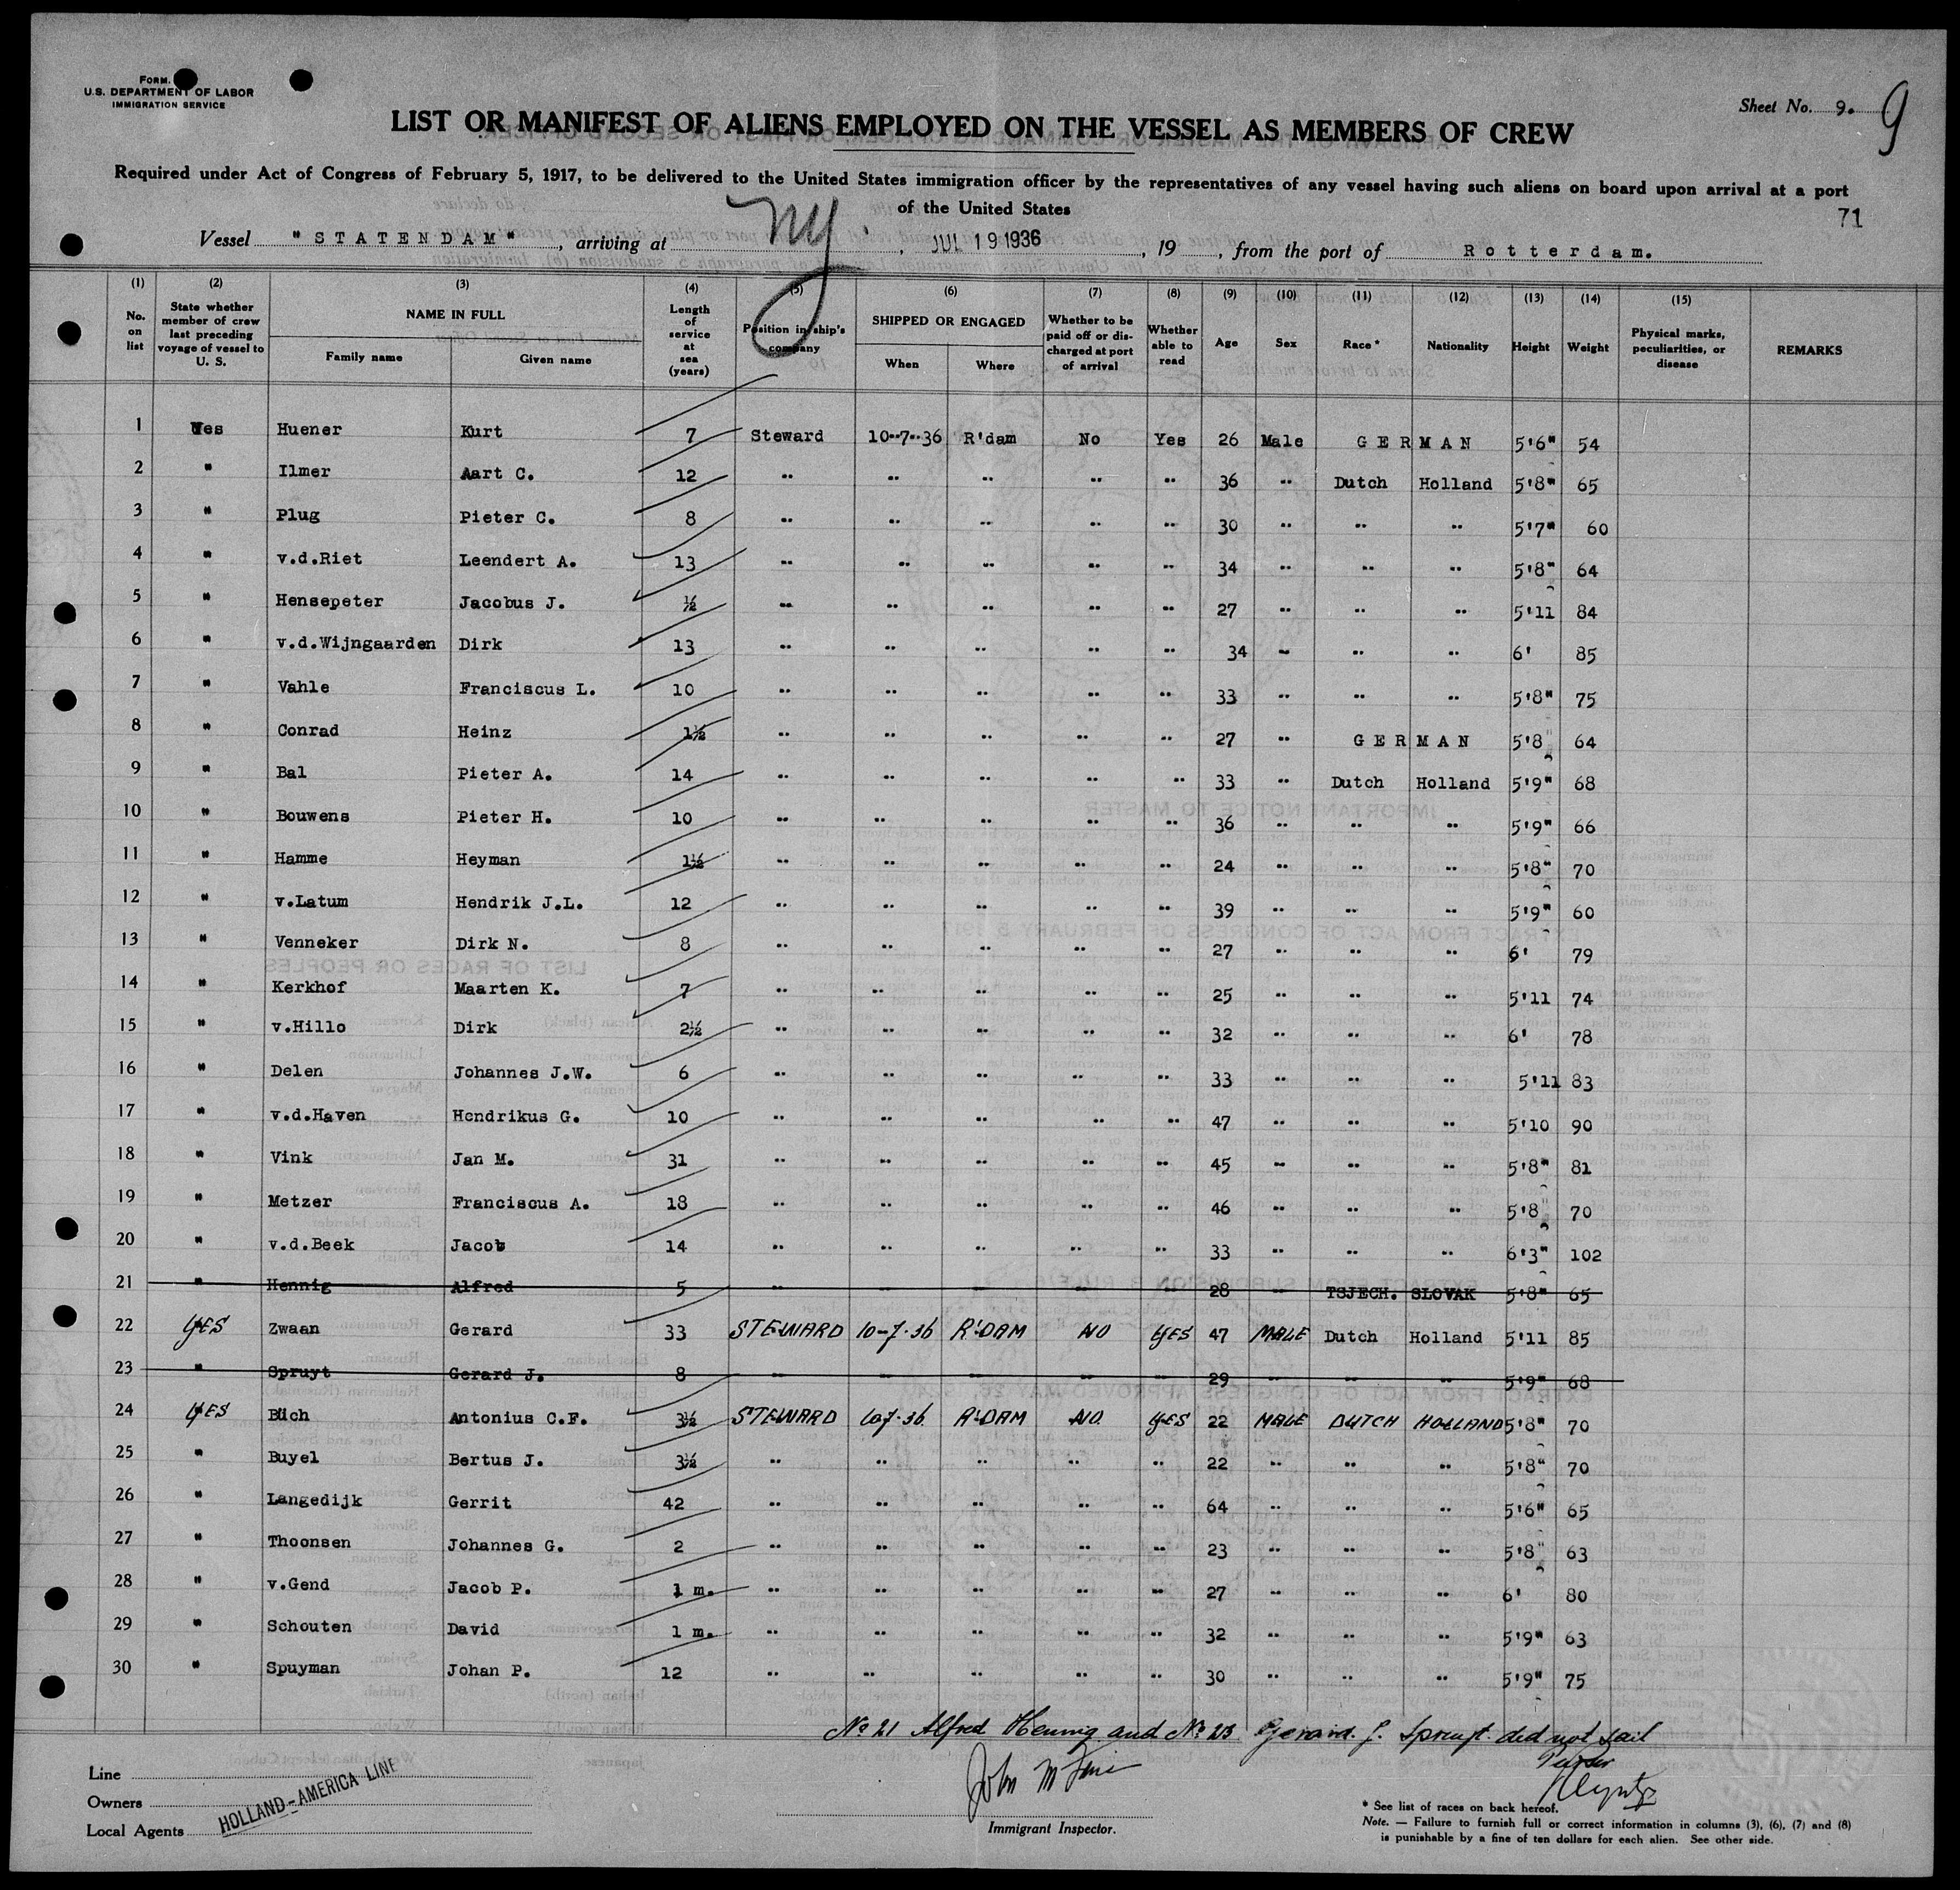 Form.
U.S. DEPARTMENT OF LABOR
IMMIGRATION SERVICE
Sheet No. 9. 9
LIST OR MANIFEST OF ALIENS EMPLOYED ON THE VESSEL AS MEMBERS OF CREW
Required under Act of Congress of February 5, 1917, to be delivered to the United States immigration officer by the representatives of any vessel having such aliens on board upon arrival at a port
of the United States
71
Vessel "STATENDAM", arriving at NY., JUL 19 1936, 19, from the port of Rotterdam.
(1) (2) (3) (4) (5) (6) (7) (8) (9) (10) (11) (12) (13) (14) (15)
No. on list | State whether member of crew last preceding voyage of vessel to U. S. | NAME IN FULL Family name Given name | Length of service at sea (years) | Position in ship's company | SHIPPED OR ENGAGED When Where | Whether to be paid off or discharged at port of arrival | Whether able to read | Age | Sex | Race* | Nationality | Height | Weight | Physical marks, peculiarities, or disease | REMARKS
1 Yes Huener Kurt 7 Steward 10-7-36 R'dam No Yes 26 Male GERMAN 5'6" 54
2 " Ilmer Aart C. 12 " " " " " 36 " Dutch Holland 5'8" 65
3 " Plug Pieter C. 8 " " " " " 30 " " " 5'7" 60
4 " v.d.Riet Leendert A. 13 " " " " " 34 " " " 5'8" 64
5 " Hensepeter Jacobus J. ½ " " " " " 27 " " " 5'11 84
6 " v.d.Wijngaarden Dirk 13 " " " " " 34 " " " 6' 85
7 " Vahle Franciscus L. 10 " " " " " 33 " " " 5'8" 75
8 " Conrad Heinz 1½ " " " " " 27 " GERMAN 5'8 64
9 " Bal Pieter A. 14 " " " " " 33 " Dutch Holland 5'9" 68
10 " Bouwens Pieter H. 10 " " " " " 36 " " " 5'9" 66
11 " Hamme Heyman 1½ " " " " " 24 " " " 5'8" 70
12 " v.Latum Hendrik J.L. 12 " " " " " 39 " " " 5'9" 60
13 " Venneker Dirk N. 8 " " " " " 27 " " " 6' 79
14 " Kerkhof Maarten K. 7 " " " " " 25 " " " 5'11 74
15 " v.Hillo Dirk 2½ " " " " " 32 " " " 6' 78
16 " Delen Johannes J.W. 6 " " " " " 33 " " " 5'11 83
17 " v.d.Haven Hendrikus G. 10 " " " " " 47 " " " 5'10 90
18 " Vink Jan M. 31 " " " " " 45 " " " 5'8" 81
19 " Metzer Franciscus A. 18 " " " " " 46 " " " 5'8 70
20 " v.d.Beek Jacob 14 " " " " " 33 " " " 6'3" 102
21 " Hennig Alfred 5 " " " " " 28 " TSJECH. SLOVAK 5'8" 65
22 YES Zwaan Gerard 33 STEWARD 10-7-36 R'DAM NO YES 47 MALE Dutch Holland 5'11 85
23 " Spruyt Gerard J. 8 " " " " " 29 " " " 5'9" 68
24 YES Büch Antonius C.F. 3½ STEWARD 10.7.36 R'DAM NO YES 22 MALE DUTCH HOLLAND 5'8" 70
25 " Buyel Bertus J. 3½ " " " " " 22 " " " 5'8" 70
26 " Langedijk Gerrit 42 " " " " " 64 " " " 5'6" 65
27 " Thoonsen Johannes G. 2 " " " " " 23 " " " 5'8" 63
28 " v.Gend Jacob P. 1 m. " " " " " 27 " " " 6' 80
29 " Schouten David 1 m. " " " " " 32 " " " 5'9" 63
30 " Spuyman Johan P. 12 " " " " " 30 " " " 5'9" 75
No 21 Alfred Hennig and No 23 Gerard. J. Spruyt. did not sail
Purser
Line
Owners
Local Agents
HOLLAND-AMERICA LINE
Immigrant Inspector.
* See list of races on back hereof.
Note. — Failure to furnish full or correct information in columns (3), (6), (7) and (8)
is punishable by a fine of ten dollars for each alien. See other side.